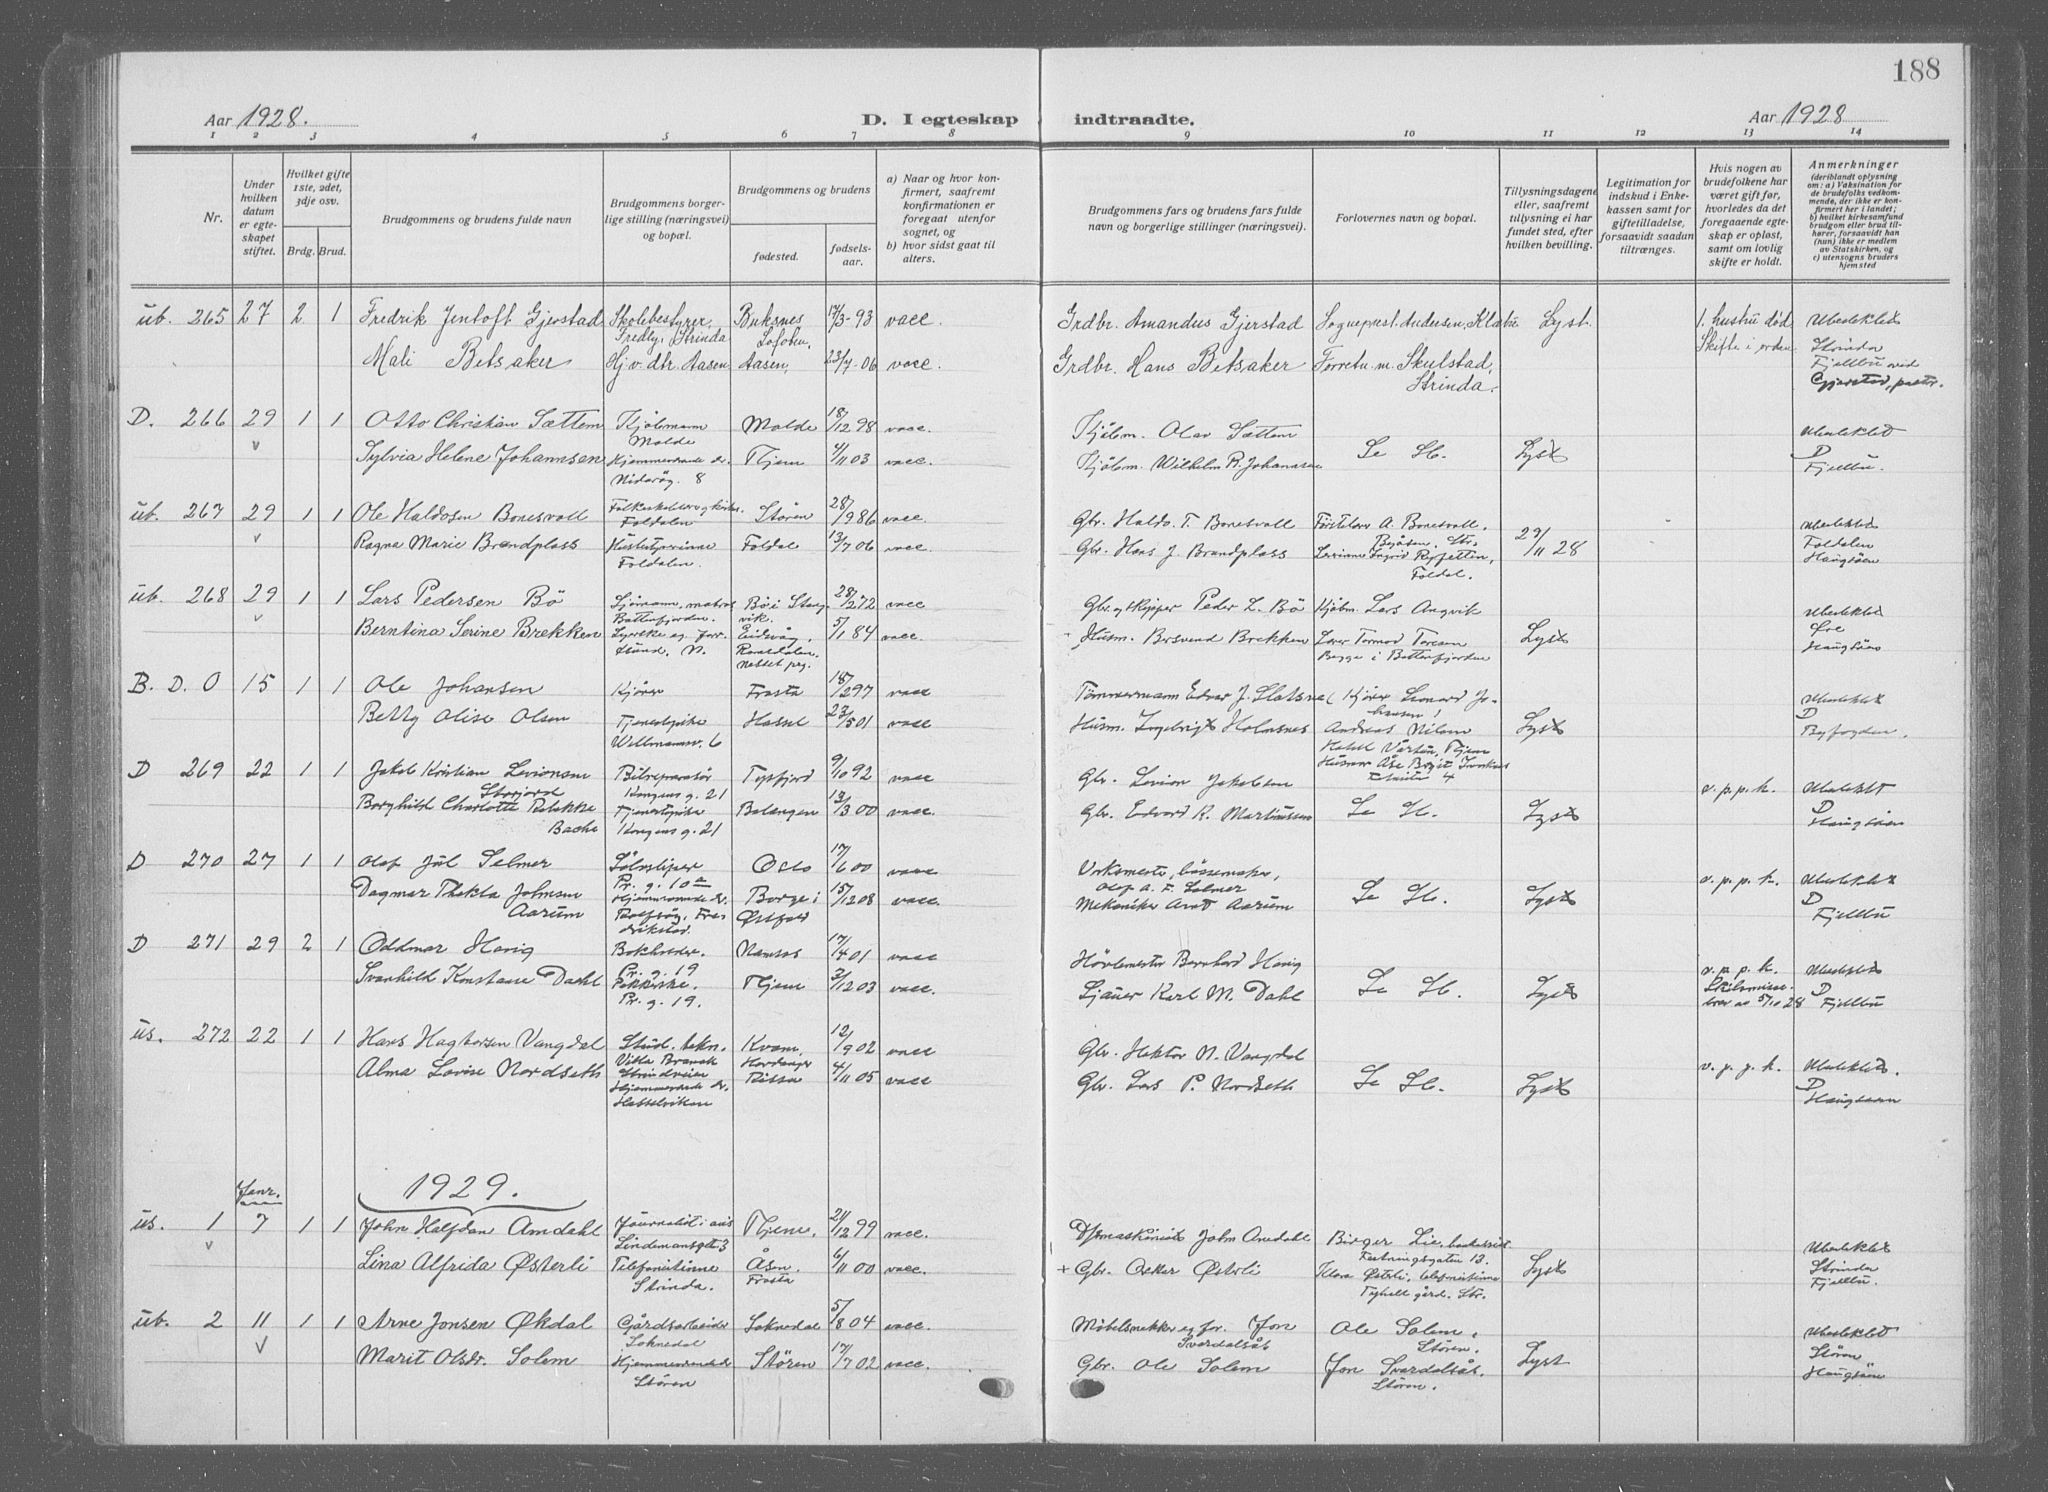 188
Aar 1928.
D. I egteskap indtraadte.
Aar 1928
1 2 3 4 5 6 7 8 9 10 11 12 13 14
Nr.
Under hvilken datum er egteskapet stiftet.
Hvilket gifte 1ste, 2det, 3dje osv.
Brdg. Brud.
Brudgommens og brudens fulde navn
Brudgommens borgerlige stilling (næringsvei) og bopæl.
Brudgommens og brudens
fødested.
fødselsaar.
a) Naar og hvor konfirmert, saafremt konfirmationen er foregaat utenfor sognet, og
b) hvor sidst gaat til alters.
Brudgommens fars og brudens fars fulde navn og borgerlige stillinger (næringsvei).
Forlovernes navn og bopæl.
Tillysningsdagene eller, saafremt tillysning ei har fundet sted, efter hvilken bevilling.
Legitimation for indskud i Enkekassen samt for giftetilladelse, forsaavidt saadan tiltrænges.
Hvis nogen av brudefolkene har været gift før, hvorledes da det foregaaende egteskap er opløst, samt om lovlig skifte er holdt.
Anmerkninger
(deriblandt oplysning om: a) Vaksination for de brudefolks vedkommende, der ikke er konfirmert her i landet; b) hvilket kirkesamfund brudgom eller brud tilhører, forsaavidt han (hun) ikke er medlem av Statskirken, og c) utensogns bruders hjemsted
ub. 265 27 2 1 Fredrik Jentoft Gjerstad Skolebestyrer, Fredly, Strinda Buksnes Lofoten, 17/3-93 vacc. Grdbr. Amandus Gjerstad Sogneprest Andersen, Klæbu Lyst. 1. hustru død Skifte i orden Ubeslektet
Mali Betsaker Hj.v. dtr. Aasen, Aasen, 23/7-06 vacc. Grdbr. Hans Betsaker Forretn.m. Skulstad, Strinda. Strinda Fjellbu ved Gjerstad, pastor.
D. 266 29 1 1 Otto Christian Sættem Kjøbmann Molde Molde 18/12 98 vacc. Kjøbm. Olav Sættem Ubeslektet
Sylvia Helene Johannsen Hjemmeværende dr. Nidarög. 8 Thjem 4/11 03 vacc. Kjøbm. Wilhelm R. Johannsen Se Hb. Lyst D Fjellbu.
ub. 267 29 1 1 Ole Haldosen Bonesvoll Foldalen Støren 28/9 86 vacc. Gbr. Haldo T. Bonesvoll A. Bonesvoll, Str. 29/11 28 Ubeslektet
Ragna Marie Brandplass Foldalen. Foldal 13/7 06 vacc. Gbr. Hans J. Brandplass Ingrid Foldal. Foldalen Haugsöen
ub. 268 29 1 1 Lars Pedersen Bö Sjömann, matros Battenfjorden. Bö i Stangvik. 28/2 72 vacc Gbr. og skipper Peder L. Bö Kjöbm. Lars Angvik Ubeslektet
Berntina Serine Brekken Eidsvåg, Romsdalen. Nesset prg. 5/1 84 vacc. Husm. Bersvend Brekken Lærer Tormod Toresen Begge i Battenfjorden Lyst Øre Haugsöen
B. D. 0 15 1 1 Ole Johansen Kjörer Frosta 18/2 97 vacc Tömmermann Edvar J. Slatsna Kjörer Leonard Johansen Ubeslektet
Betty Olise Olsen Tjenestepike Wullumsv. 6 Hassel 23/5 01 vacc Husm. Ingebrigt Holmsnes Andreas Nilsen Lyst D Byfogden.
D 269 22 1 1 Jakob Kristian Levionsen Storjord Bilreparatör Kongens g. 21 Tysfjord 9/10 92 vacc Gbr. Levion Jakobsen v.p.p.k. Ubeslektet
Borghild Charlotte Bache Tjenestepike Kongens g. 21 Balangen 13/3 00 vacc. Gbr. Edvard R. Martinussen Se Hb. Lyst D Haugsöen
D 270 27 1 1 Olaf Jul Selmer Sölvsliper Pr. g. 10 Oslo 17/6 00 vacc Verksmester, bössemaker, Olaf A. F. Selmer v.p.p.k. Ubeslektet
Dagmar Thekla Johnsen Aarum Hjemmeværende dr. Fredrikstad. Borge i Østfold 15/12 08 vacc. Mekaniker Arnt Aarum Se Hb. Lyst D Fjellbu
D 271 29 2 1 Oddmar Havig Bokholder. Pr. g. 19 Namsos 17/4 01 vacc Hövlemester Bernhard Havig v.p.p.k. Ubeslektet
Svanhild Konstanse Dahl Pakkerske. Pr. g. 19. Thjem 3/12 03 vacc. Sjauer Karl M. Dahl Se Hb. Lyst Skilsmissebrev av 5/10 28 D Fjellbu
us. 272 22 1 1 Hans Hagbartsen Vangdal Stud. tekn. Villa Strindveien Kvam, Hardanger 12/9 02 vacc Gbr. Hektor N. Vangdal v.p.p.k. Ubeslektet.
Alma Lovise Nordseth Hjemmeværende dr. Hasselvikan Rissa 4/11 05 vacc Gbr. Lars P. Nordseth Se Hb. Lyst D Haugsøen
Janr. 1929.
us. 1 7 1 1 John Halfdan Amdahl Journalist i avis Lindemansgt 3 Thjem. 21/12 99 vacc. John Amdahl Birger Lie, Festningsgaten 13. Ubeslektet
Lina Alfrida Østerli Telefonistinne Strinda. Åsen Frosta 6/11 00 vacc. + Gbr. Oskar Østerli Klara Østerli, telefonistinne Tyholt gård. Str. Lyst Strinda Fjellbu.
ub. 2 11 1 1 Arne Jonsen Økdal Gårdsarbeider Soknedal Soknedal 5/8 04 vacc. Möbelsnekker og for. Jon Svardalsås Ole Solem, Støren. Ubeslektet
Marit Olsdr. Solem Hjemmeværende Støren Støren 17/7 02 vacc. Gbr. Ole Solem Jon Svardalsås. Støren. Lyst Støren Haugsöen